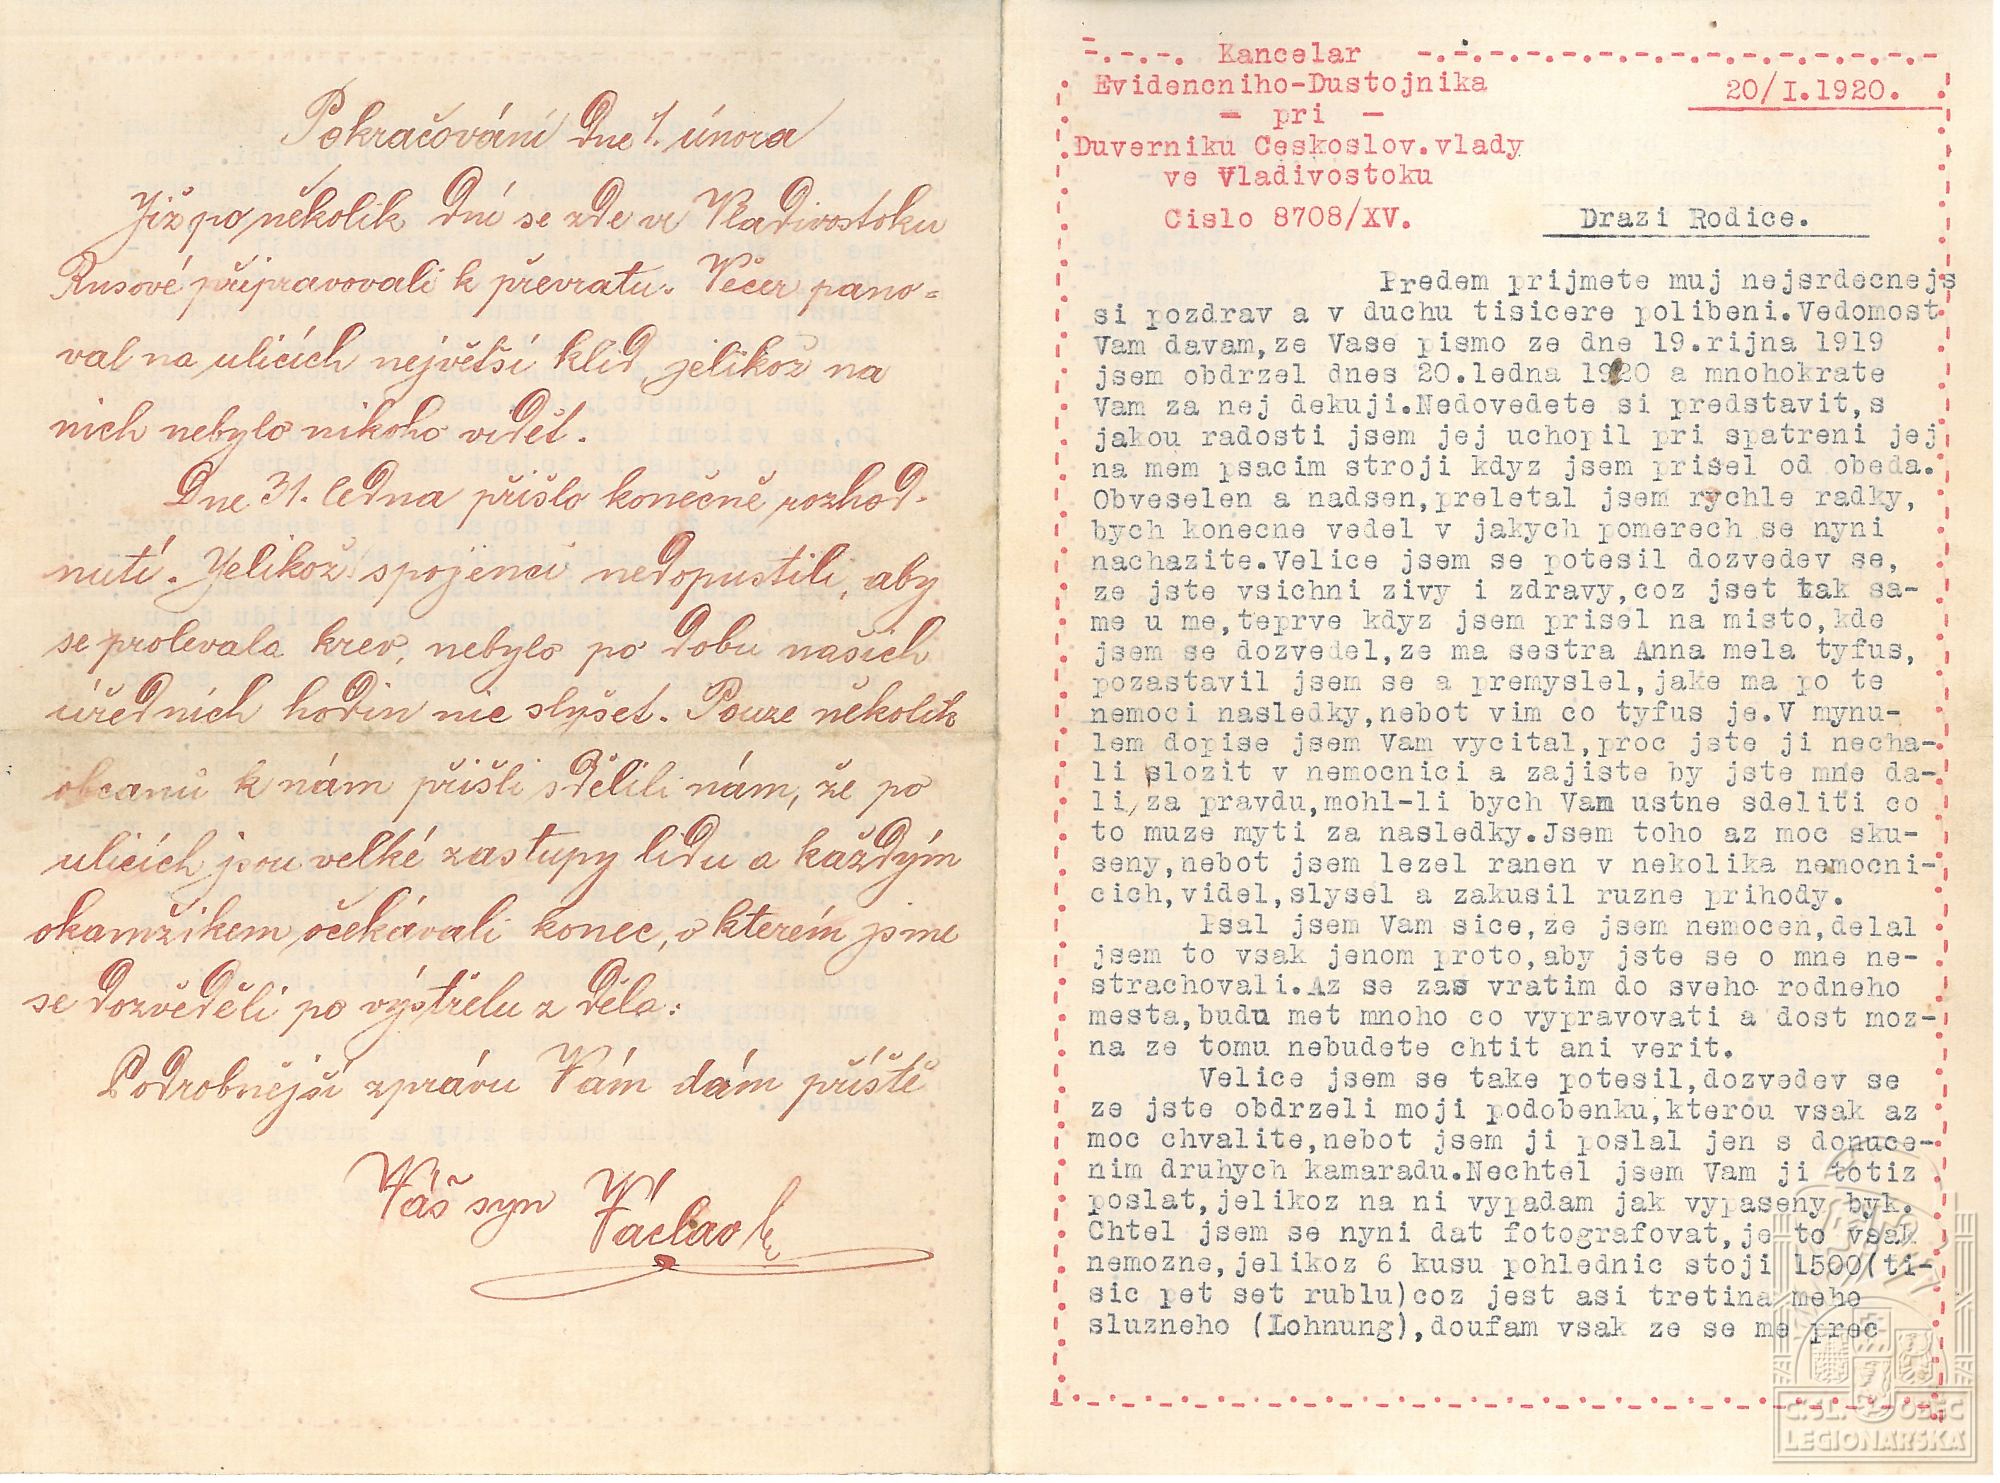 Pokračování Dne 1. února
Již po několik dní se zde ve Vladivostoku
Rusové připravovali k převratu. Večer pano=
val na ulicích největší klid, jelikož na
nich nebylo nikoho vidět.
Dne 31. ledna přišlo konečně rozhod-
nutí. Jelikož spojenci nedopustili, aby
se prolevala krev, nebylo po dobu našich
úředních hodin nic slyšet. Pouze několik
občanů k nám přišli sdělili nám, že po
ulicích jsou velké zastupy lidu a každým
okamžikem očekávali konec, o kterém jsme
se dozvěděli po výstřelu z děla:
Podrobnější zprávu Vám dám příště
Váš syn Václav
-.-.-. Kancelar -.-.-.-.-.-.-.-.-.-.-.-
Evidencniho-Dustojnika
20/I.1920.
- pri -
Duverniku Ceskoslov.vlady
ve Vladivostoku
Cislo 8708/XV.
Drazi Rodice.
Predem prijmete muj nejsrdecnejs
si pozdrav a v duchu tisicere polibeni.Vedomost
Vam davam,ze Vase pismo ze dne 19.rijna 1919
jsem obdrzel dnes 20.ledna 1920 a mnohokrate
Vam za nej dekuji.Nedovedete si predstavit,s
jakou radosti jsem jej uchopil pri spatreni jej
na mem psacim stroji kdyz jsem prisel od obeda.
Obveselen a nadsen,preletal jsem rychle radky,
bych konecne vedel v jakych pomerech se nyni
nachazite.Velice jsem se potesil dozvedev se,
ze jste vsichni zivy i zdravy,coz jset tak sa-
me u me,teprve kdyz jsem prisel na misto,kde
jsem se dozvedel,ze ma sestra Anna mela tyfus,
pozastavil jsem se a premyslel,jake ma po te
nemoci nasledky,nebot vim co tyfus je.V mynu-
lem dopise jsem Vam vycital,proc jste ji necha-
li slozit v nemocnici a zajiste by jste mne da-
li za pravdu,mohl-li bych Vam ustne sdeliti co
to muze myti za nasledky.Jsem toho az moc sku-
seny,nebot jsem lezel ranen v nekolika nemocni-
cich,videl,slysel a zakusil ruzne prihody.
Psal jsem Vam sice,ze jsem nemocen,delal
jsem to vsak jenom proto,aby jste se o mne ne-
strachovali.Az se zas vratim do sveho rodneho
mesta,budu met mnoho co vypravovati a dost moz-
na ze tomu nebudete chtit ani verit.
Velice jsem se take potesil,dozvedev se
ze jste obdrzeli moji podobenku,kterou vsak az
moc chvalite,nebot jsem ji poslal jen s donuce-
nim druhych kamaradu.Nechtel jsem Vam ji totiz
poslat,jelikoz na ni vypadam jak vypaseny byk.
Chtel jsem se nyni dat fotografovat,je to vsak
nemozne,jelikoz 6 kusu pohlednic stoji 1500(ti-
sic pet set rublu)coz jest asi tretina meho
sluzneho (Lohnung),doufam vsak ze se me prec
Č.SL. OBEC
LEGIONÁŘSKÁ